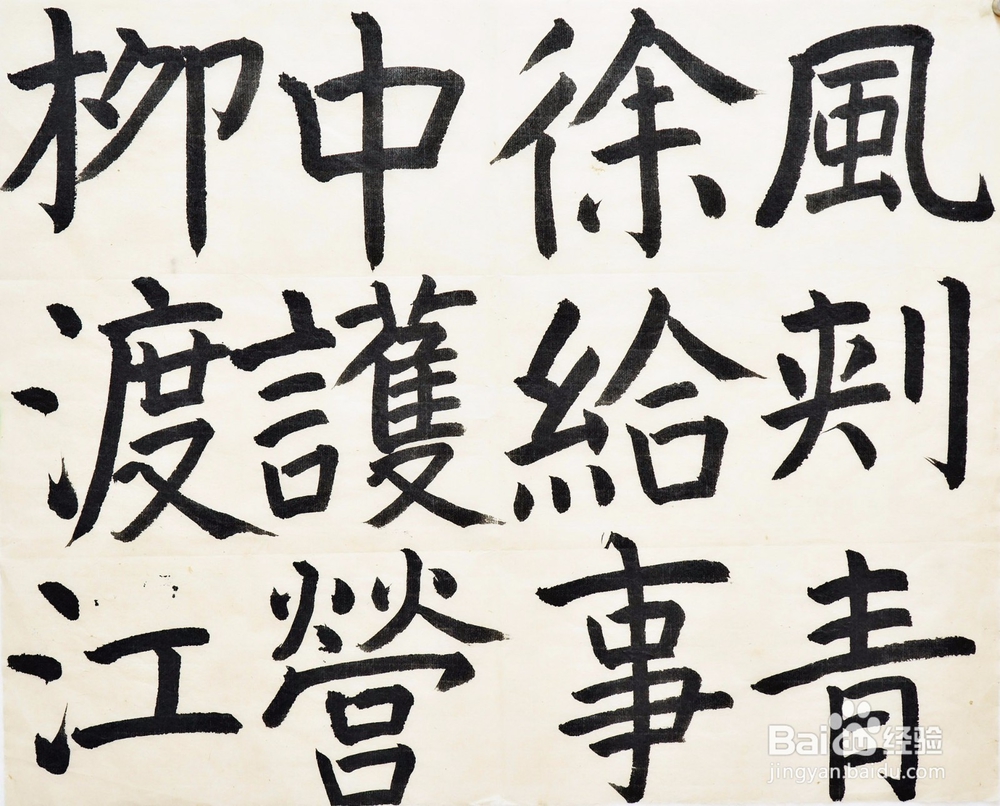 風刾青
徐給事
中護營
柳渡江
Baidu 经验
jingyan.baidu.com